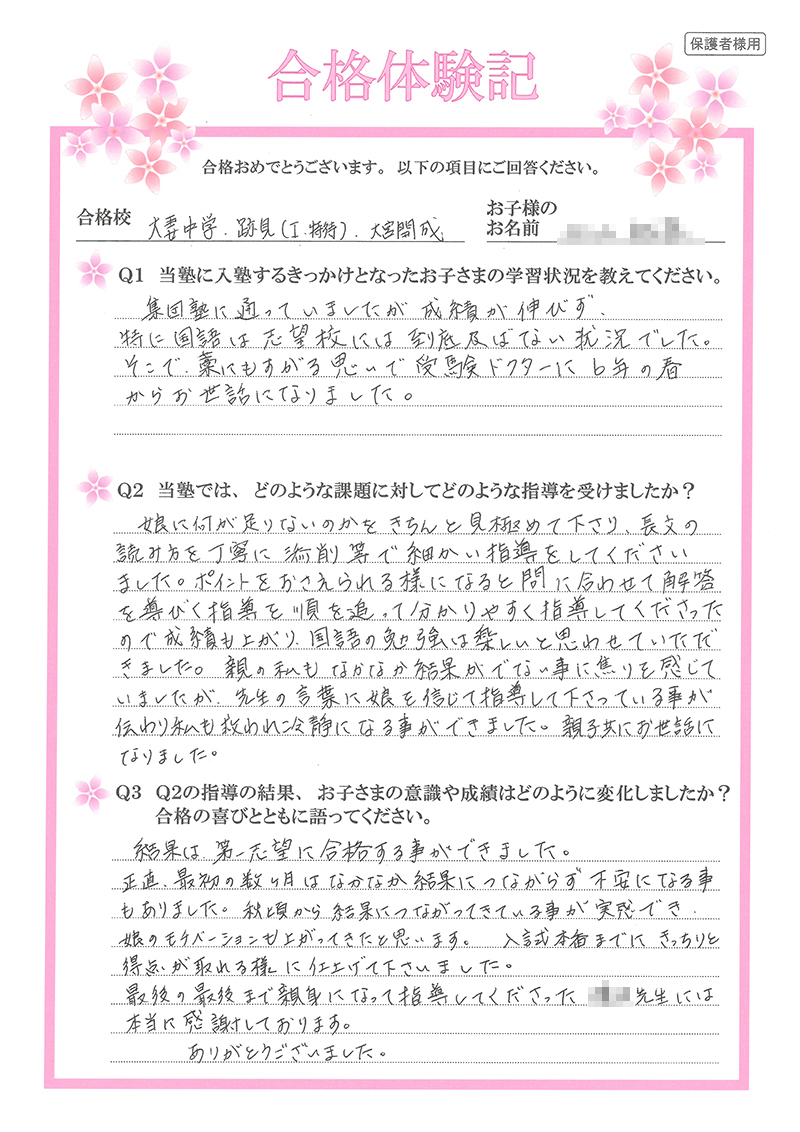 保護者様用
合格体験記
合格おめでとうございます。以下の項目にご回答ください。
合格校 大妻中学、跡見(I.特待)、大宮開成
お子様の
お名前
Q1 当塾に入塾するきっかけとなったお子さまの学習状況を教えてください。
集団塾に通っていましたが成績が伸びず、
特に国語は志望校には到底及ばない状況でした。
そこで、藁にもすがる思いで受験ドクターに6年の春
からお世話になりました。
Q2 当塾では、どのような課題に対してどのような指導を受けましたか?
娘に何が足りないのかをきちんと見極めて下さり、長文の
読み方を丁寧に添削等で細かい指導をしてください
ました。ポイントをおさえられる様になると問に合わせて解答
を導びく指導を順を追って分かりやすく指導してくださった
ので成績も上がり、国語の勉強は楽しいと思わせていただ
きました。親の私もなかなか結果がでない事に焦りを感じて
いましたが、先生の言葉に娘を信じて指導して下さっている事が
伝わり私も救われ冷静になる事ができました。親子共にお世話に
なりました。
Q3 Q2の指導の結果、お子さまの意識や成績はどのように変化しましたか?
合格の喜びとともに語ってください。
結果は、第一志望に合格する事ができました。
正直、最初の数ヶ月はなかなか結果につながらず不安になる事
もありました。秋頃から結果につながってきている事が実感でき、
娘のモチベーションも上がってきたと思います。入試本番までにきっちりと
得点が取れる様に仕上げて下さいました。
最後の最後まで親身になって指導してくださった 先生には
本当に感謝しております。
ありがとうございました。